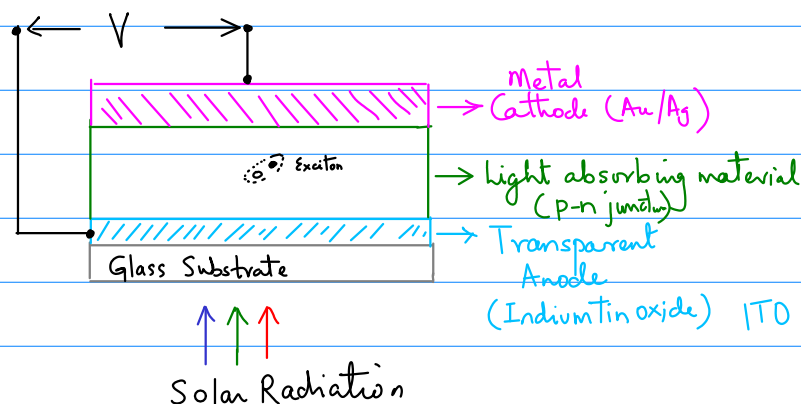 V
Metal
Cathode (Au/Ag)
Exciton
Light absorbing material
(p-n junction)
Transparent
Anode
(Indium tin oxide) ITO
Glass Substrate
Solar Radiation